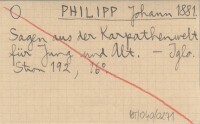 O PHILIPP Johann 1881.
Sagen aus der Karpathenwelt
für Jung und Alt. — Iglo.
Strn 192, 16°